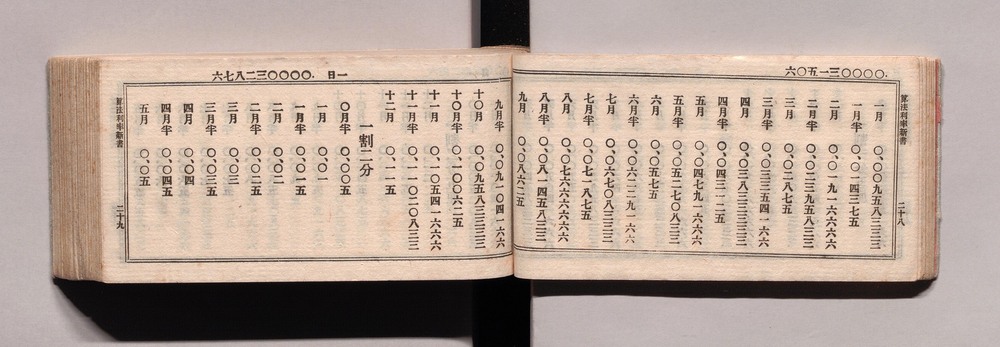 .〇〇〇〇三一五〇六
算法利率新書
二十八
一月 〇、〇〇九五八三三三
一月半 〇、〇一四三七五
二月 〇、〇一九一六六六六
二月半 〇、〇二三九五八三三
三月 〇、〇二八七五
三月半 〇、〇三三五四一六六
四月 〇、〇三八三三三三三
四月半 〇、〇四三一二五
五月 〇、〇四七九一六六六
五月半 〇、〇五二七〇八三三
六月 〇、〇五七五
六月半 〇、〇六二二九一六六
七月 〇、〇六七〇八三三三
七月半 〇、〇七一八七五
八月 〇、〇七六六六六六六
八月半 〇、〇八一四五八三三
九月 〇、〇八六二五
一日 .〇〇〇〇三二八七六
九月半 〇、〇九一〇四一六六
十〇月 〇、〇九五八三三三三
十〇月半 〇、一〇〇六二五
十一月 〇、一〇五四一六六六
十一月半 〇、一一〇二〇八三三
十二月 〇、一一五
一割二分
〇月半 〇、〇〇五
一月 〇、〇一
一月半 〇、〇一五
二月 〇、〇二
二月半 〇、〇二五
三月 〇、〇三
三月半 〇、〇三五
四月 〇、〇四
四月半 〇、〇四五
五月 〇、〇五
算法利率新書
二十九